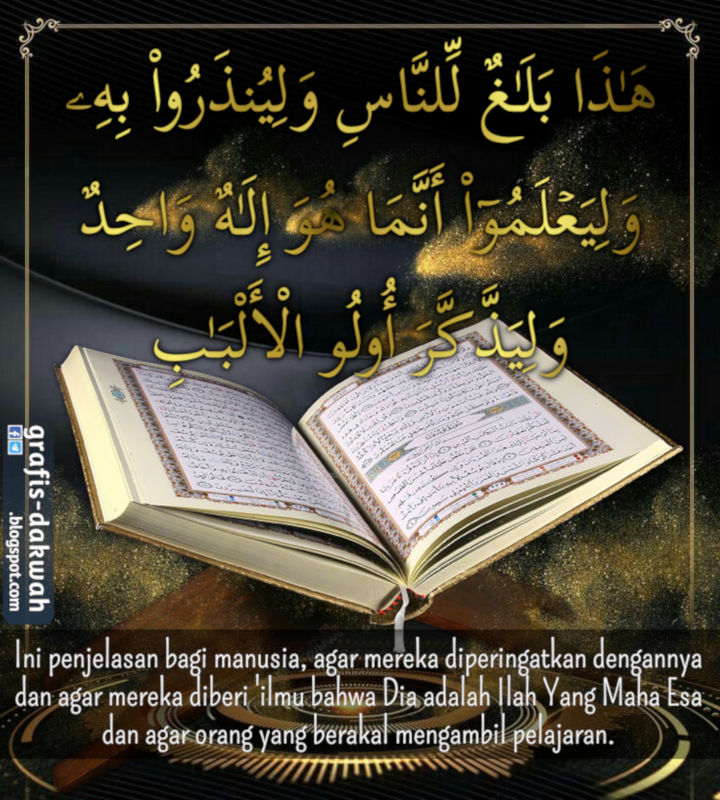 هَٰذَا بَلَٰغٌ لِّلنَّاسِ وَلِيُنذَرُوا۟ بِهِۦ
وَلِيَعْلَمُوٓا۟ أَنَّمَا هُوَ إِلَٰهٌ وَاحِدٌ
وَلِيَذَّكَّرَ أُولُو الْأَلْبَٰبِ
grafis-dakwah
.blogspot.com
Ini penjelasan bagi manusia, agar mereka diperingatkan dengannya
dan agar mereka diberi 'ilmu bahwa Dia adalah Ilah Yang Maha Esa
dan agar orang yang berakal mengambil pelajaran.